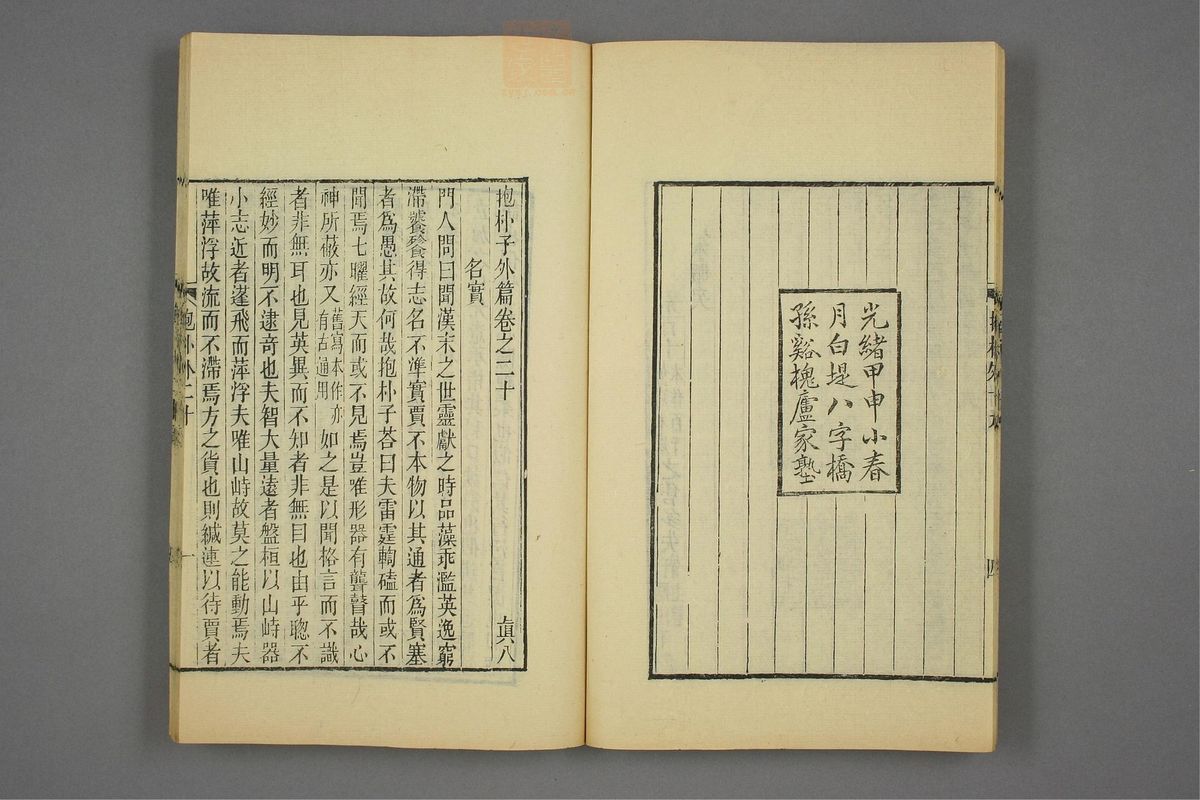 光緒甲申小春
月白堤八字橋
孫谿槐廬家塾
四
抱朴子外篇卷之二十 真八
名實
門人問曰聞漢末之世靈獻之時品藻乖濫英逸窮
滯饕餮得志名不準實賈不本物以其通者爲賢塞
者爲愚其故何哉抱朴子荅曰夫雷霆輷磕而或不
聞焉七曜經天而或不見焉豈唯形器有聾瞽哉心
神所蔽亦又舊寫本作亦有古通用如之是以聞格言而不識
者非無耳也見英異而不知者非無目也由乎聦不
經妙而明不逮奇也夫智大量遠者盤桓以山峙器
小志近者蓬飛而萍浮夫唯山峙故莫之能動焉夫
唯萍浮故流而不滯焉方之貨也則緘連以待賈者
抱朴外二十
一